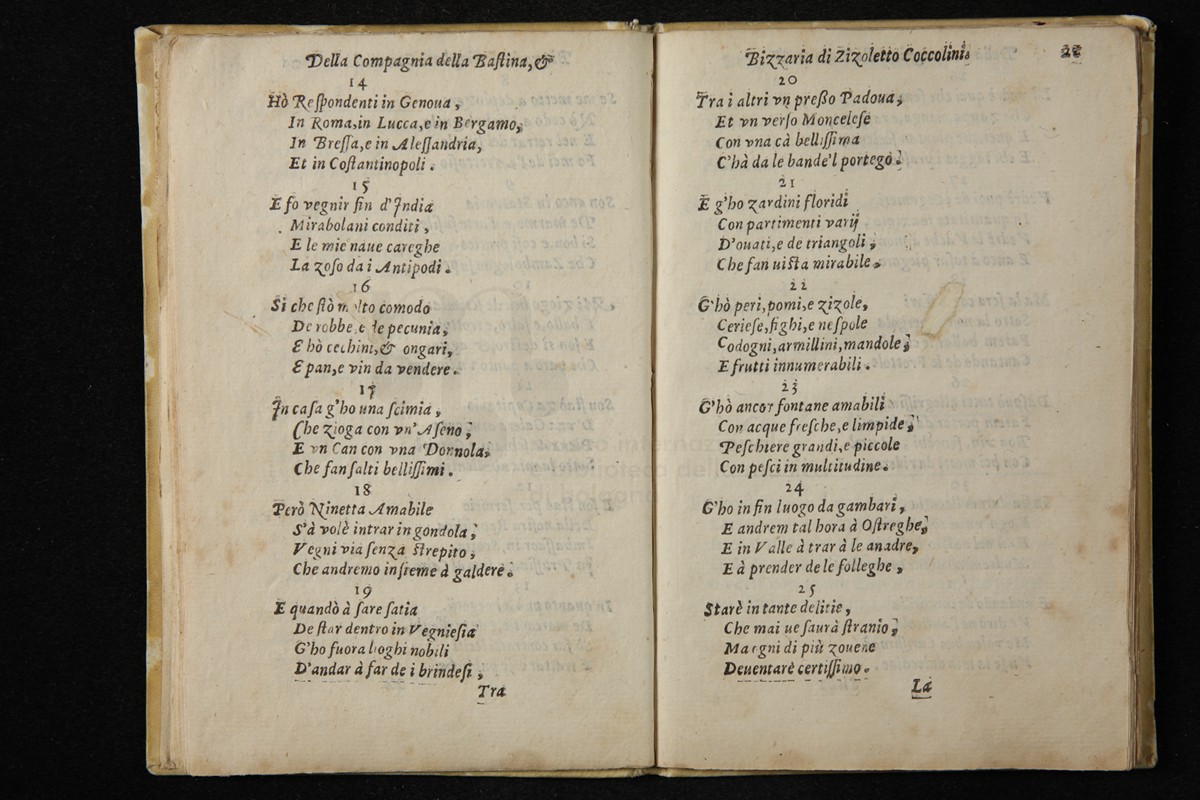 Della Compagnia della Baſtina, &
14
Hò Reſpondenti in Genoua,
In Roma, in Lucca, e in Bergamo,
In Breſſa, e in Aleſſandria,
Et in Coſtantinopoli.
15
E fò vegnir fin d'India
Mirabolani conditi,
E le mie naue careghe
La zoſo da i Antipodi.
16
Si che ſtò molto comodo
De robbe, e de pecunia,
E hò cechini, & ongari,
E pan, e vin da vendere.
17
In caſa g'ho una ſcimia,
Che zioga con vn' Aſeno,
E vn Can con vna Donnola,
Che fan ſalti belliſſimi.
18
Però Ninetta Amabile
S'à volè intrar in gondola,
Vegni via ſenza ſtrepito,
Che andremo inſieme à galdere.
19
E quandò à ſare ſatia
De ſtar dentro in Vegnieſia
G'ho fuora luoghi nobili
D'andar à far de i brindeſi,
Tra
Bizzaria di Zizoletto Coccolini.
20
Tra i altri vn preßo Padoua,
Et vn verſo Monceleſe
Con vna cà belliſſima
C'hà da le bande'l portego.
21
E g'ho zardini floridi
Con partimenti varij
D'ouati, e de triangoli,
Che fan uiſta mirabile.
22
G'hò peri, pomi, e zizole,
Cerieſe, fighi, e neſpole
Codogni, armillini, mandole,
E frutti innumerabili.
23
G'hò ancor fontane amabili
Con acque freſche, e limpide,
Peſchiere grandi, e piccole
Con peſci in multitudine.
24
G'ho in fin luogo da gambari,
E andrem tal hora à Oſtreghe,
E in Valle à trar à le anadre,
E à prender de le folleghe,
25
Starè in tante delitie,
Che mai ue ſaurà ſtranio,
Ma ogni dì più zouene
Deuentarè certiſſimo.
La